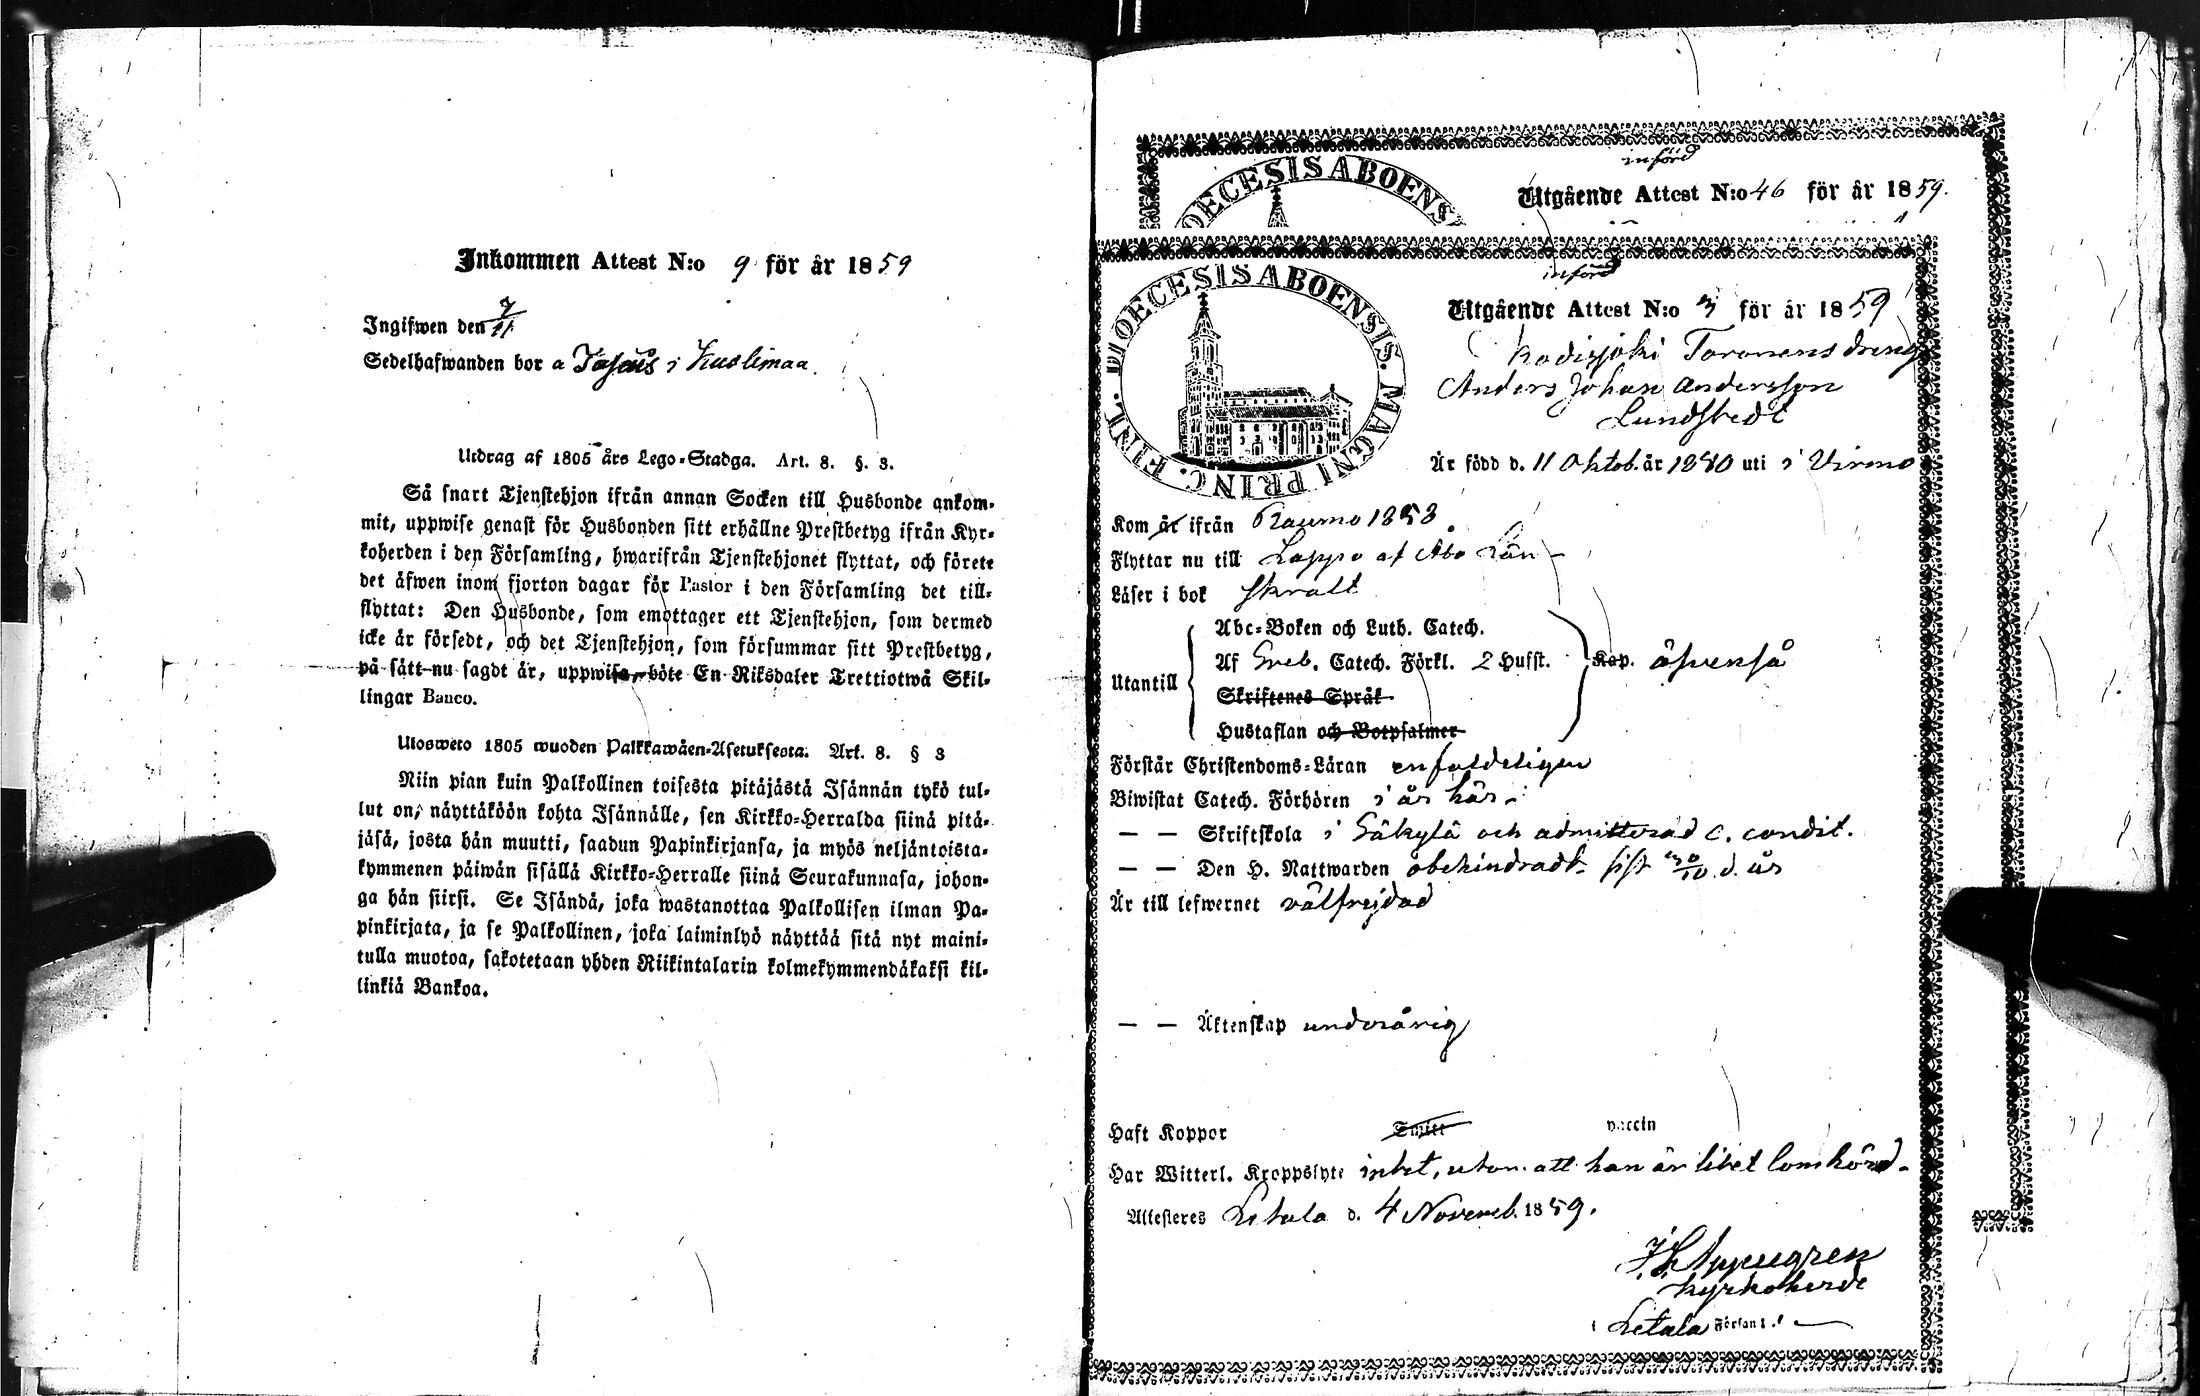 Inkommen Attest N:o 9 för år 1859
Ingifwen den 7/11
Sedelhafwanden bor a Tasais i Kuolimaa.
Utdrag af 1805 års Lego-Stadga. Art. 8. §. 3.
Så snart Tjenstehjon ifrån annan Socken till Husbonde ankom-
mit, uppwise genast för Husbonden sitt erhållne Prestbetyg ifrån Kyr-
koherden i den Församling, hwarifrån Tjenstehjonet flyttat, och förete
det äfwen inom fjorton dagar för Pastor i den Församling det till-
flyttat: Den Husbonde, som emottager ett Tjenstehjon, som dermed
icke är försedt, och det Tjenstehjon, som försummar sitt Prestbetyg,
på sätt nu sagdt är, uppwisa, böte En Riksdaler Trettiotwå Skil-
lingar Banco.
Ulosweto 1805 wuoden Palkkawäen-Asetuksesta. Art. 8. § 3
Niin pian kuin Palkollinen toisesta pitäjästä Isännän tykö tul-
lut on, näyttäköön kohta Isännälle, sen Kirkko-Herralda siinä pitä-
jäsä, josta hän muutti, saadun Papinkirjansa, ja myös neljäntoista-
kymmenen päiwän sisällä Kirkko-Herralle siinä Seurakunnasa, johon-
ga hän siirsi. Se Isändä, joka wastanottaa Palkollisen ilman Pa-
pinkirjata, ja se Palkollinen, joka laiminlyö näyttää sitä nyt maini-
tulla muotoa, sakotetaan yhden Riikintalarin kolmekymmendäkaksi kil-
linkiä Bankoa.
införd
DIOECESIS ABOENS
Utgående Attest N:o 46 för år 1859.
införd
DIOECESIS ABOENSIS. MAGNI PRINC. FINL.
Utgående Attest N:o 3 för år 1859
Kodisjoki Toronens dreng
Anders Johan Andersson
Lundstedt
Är född d. 11 Oktob. år 1840 uti i Virmo
Kom år ifrån Raumo 1858.
Flyttar nu till Lappo af Åbo Län
Läser i bok skralt
Abc-Boken och Luth. Catech.
Af Sveb. Catech. Förkl. 2 Hufst.
Utantill Kap. äfvenså
Skriftenes Språk
Hustaflan och Botpsalmer
Förstår Christendoms-Läran enfaldeligen
Biwistat Catech. Förhören i år här
— — Skriftskola i Säkylä och admitterad c. condit.
— — Den H. Nattwarden obehindradt sist 30/10 d. år
Är till lefwernet välfrejdad
— — Äktenskap underårig
Haft Koppor Smitt vaccin
Har Witterl. Kroppslyte intet, utom att han är litet lomhörd
Attesteras Letala d. 4 Novemb. 1859.
Kyrkoherde
i Letala Församl.